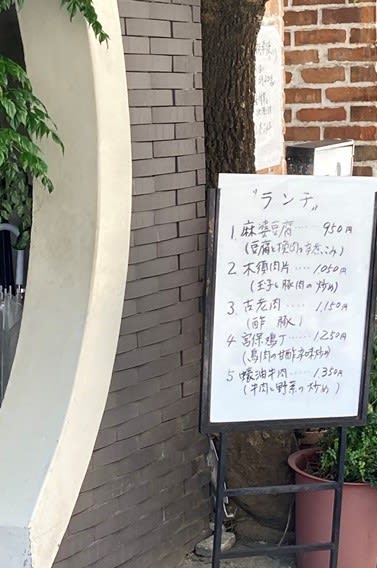 "ランチ"
1. 麻婆豆腐‥‥950円
(豆腐と挽肉の煮こみ)
2. 木須肉片‥‥1050円
(玉子と豚肉の炒め)
3. 古老肉‥‥1,150円
(酢豚)
4. 宮保鶏丁‥‥1250円
(鳥肉の甘酢味炒め)
5. 蠔油牛肉‥‥1,350円
(牛肉と野菜の炒め)